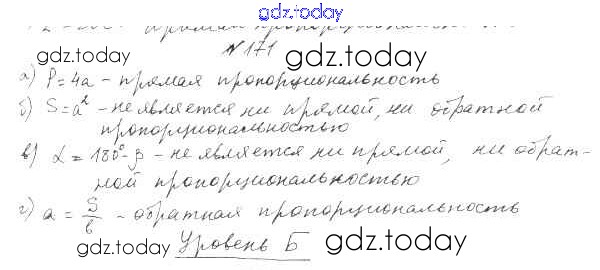 gdz.today
№ 171
gdz.today gdz.today
а) P=4a - прямая пропорциональность
б) S=a² - не является ни прямой, ни обратной
пропорциональностью
в) α = 180° - β - не является ни прямой, ни обрат-
ной пропорциональностью
г) a = S/b - обратная пропорциональность
Уровень Б
gdz.today gdz.today